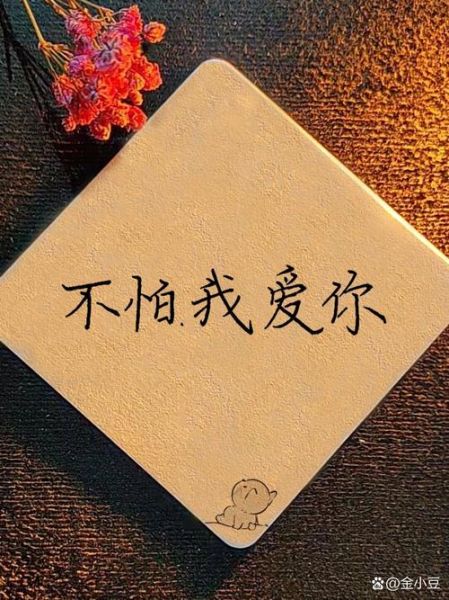 不怕.我爱你
@金小豆